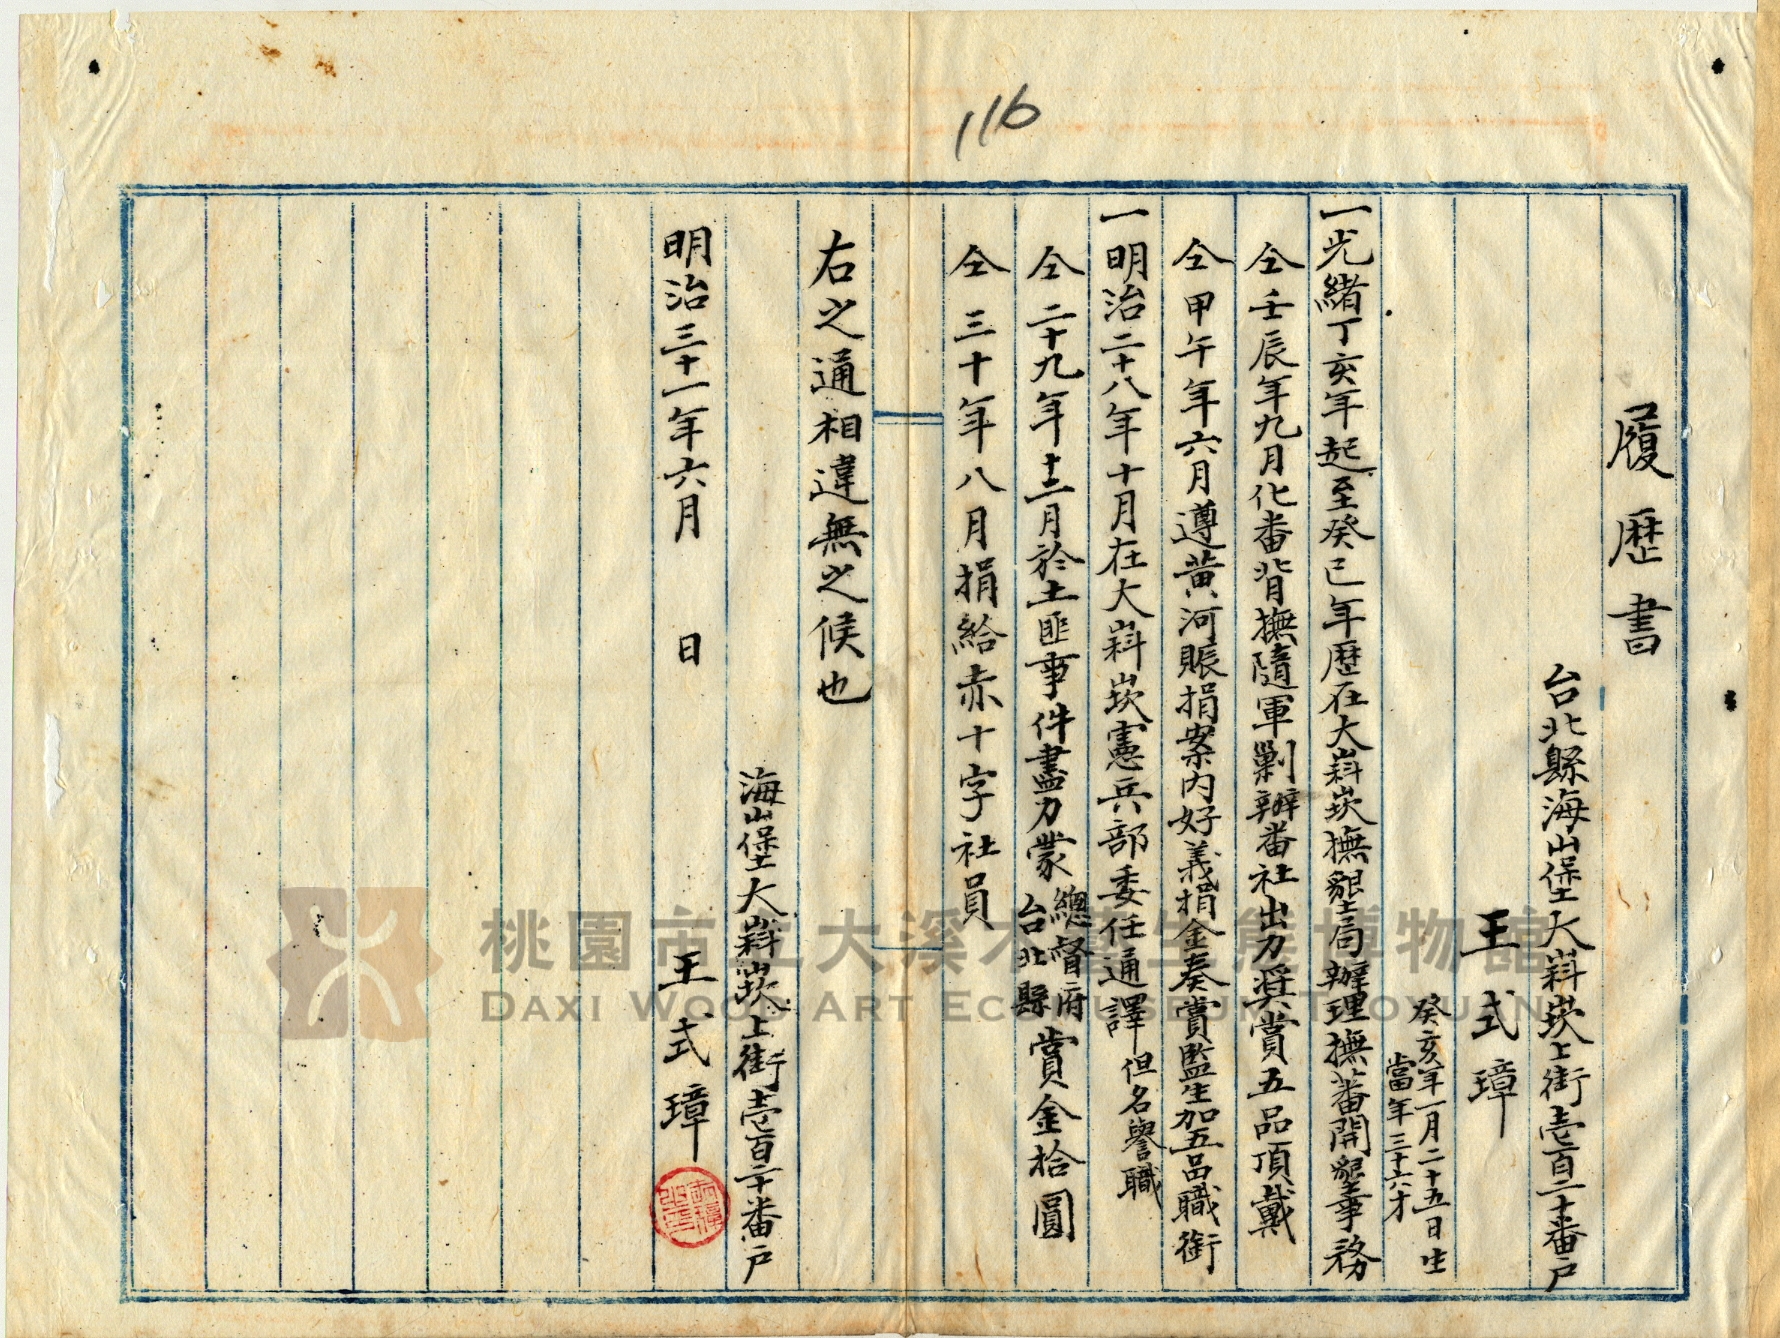 116
履歷書
台北縣海山堡大嵙崁上街壱百二十番戶
王式璋
癸亥年一月二十五日生
當年三十六才
一光緒丁亥年起至癸巳年歷在大嵙崁撫墾局辦理撫番開墾事務
仝壬辰年九月化番背撫隨軍剿辦番社出力奨賞五品頂戴
仝甲午年六月遵黃河賑捐案內好義捐金奏賞監生加五品職銜
一明治二十八年十月在大嵙崁憲兵部委任通譯但名譽職
仝二十九年十二月於土匪事件盡力蒙總督府台北縣賞金拾圓
仝三十年八月捐給赤十字社員
右之通相違無之候也
海山堡大嵙崁上街壱百二十番戶
明治三十一年六月 日
王式璋
桃園市立大溪木藝生態博物館
DAXI WOOD ART ECOMUSEUM, TAOYUAN